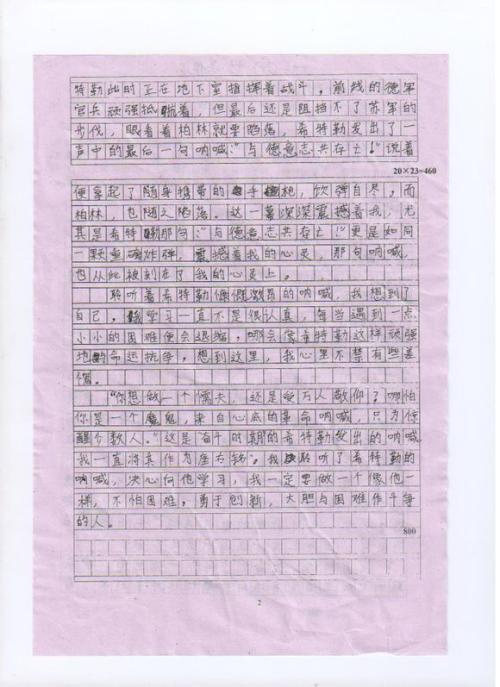 特勒此时正在地下室指挥着战斗。前线的德军
官兵顽强抵抗着，但最后还是阻挡不了苏军的
步伐，眼看着柏林就要陷落，希特勒发出了一
声中的最后一句呐喊：“与德意志共存亡！”说着
20×23=460
便拿起了随身携带的手枪，饮弹自尽，而
柏林，也随之陷落。这一幕深深震撼着我，尤
其是希特勒那句：“与德意志共存亡！”更是如同
一颗重磅炸弹，震撼着我的心灵，那句呐喊，
也从此被刻在了我的心灵上。
聆听着希特勒慷慨激昂的呐喊，我想到了
自己。我学习一直不是很认真，每当遇到一点
小小的困难便会退缩，哪会像希特勒这样顽强
地的命运抗争。想到这里，我心里不禁有些羞
愧。
“你想做一个懦夫，还是受万人敬仰？哪怕
你是一个魔鬼，来自心底的革命呐喊，只为惊
醒个数人。”这是奋斗时期的希特勒发出的呐喊
我一直将其作为座右铭。我聆听了希特勒的
呐喊，决心向他学习，我一定要做一个像他一
样，不怕困难，勇于创新，大胆与困难作斗争
的人。
800
2